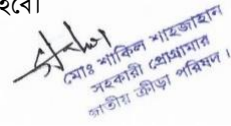 হবে।
মোঃ শাকিল শাহজাহান
সহকারী প্রোগ্রামার
জাতীয় ক্রীড়া পরিষদ।